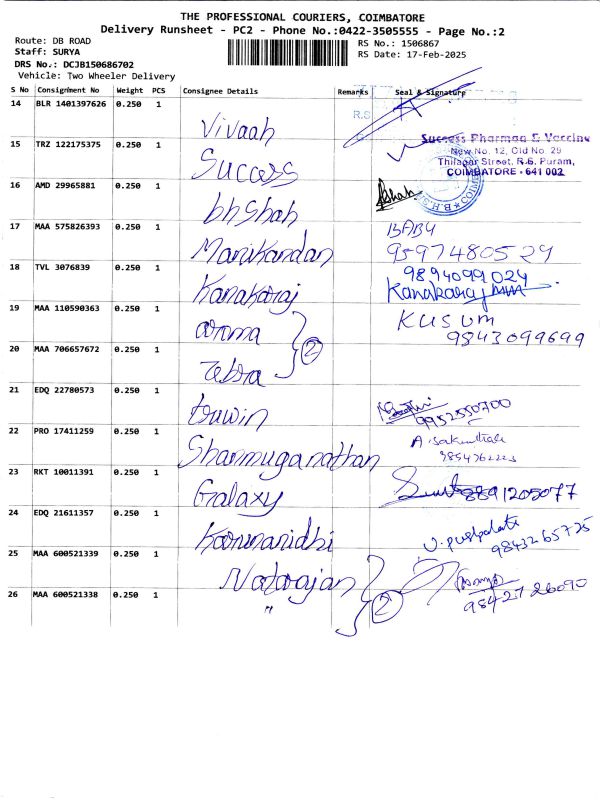 THE PROFESSIONAL COURIERS, COIMBATORE
Delivery Runsheet - PC2 - Phone No.:0422-3505555 - Page No.:2
Route: DB ROAD
Staff: SURYA
DRS No.: DCJB150686702
Vehicle: Two Wheeler Delivery
RS No.: 1506867
RS Date: 17-Feb-2025
S No Consignment No Weight PCS Consignee Details Remarks Seal & Signature
14 BLR 1401397626 0.250 1 Vivaah R.S
15 TRZ 122175375 0.250 1 Success
Success Pharmaa & Vaccine
New No. 12, Old No. 29
Thilagar Street, R.S. Puram,
COIMBATORE - 641 002
16 AMD 29965881 0.250 1 bhShah
17 MAA 575826393 0.250 1 Manikandan BABU
9597480529
18 TVL 3076839 0.250 1 Kanakaraj 9894099024
Kanakaraj
19 MAA 110590363 0.250 1 aroma KUSUM
9843099699
20 MAA 706657672 0.250 1 Zebra 2
21 EDQ 22780573 0.250 1 truwin
9952550700
22 PRO 17411259 0.250 1 Shanmuganathan
23 RKT 10011391 0.250 1 Galaxy 8891205077
24 EDQ 21611357 0.250 1 Karunanidhi V. pushpalata
9843265725
25 MAA 600521339 0.250 1 Natarajan
9842726090
26 MAA 600521338 0.250 1 " 2